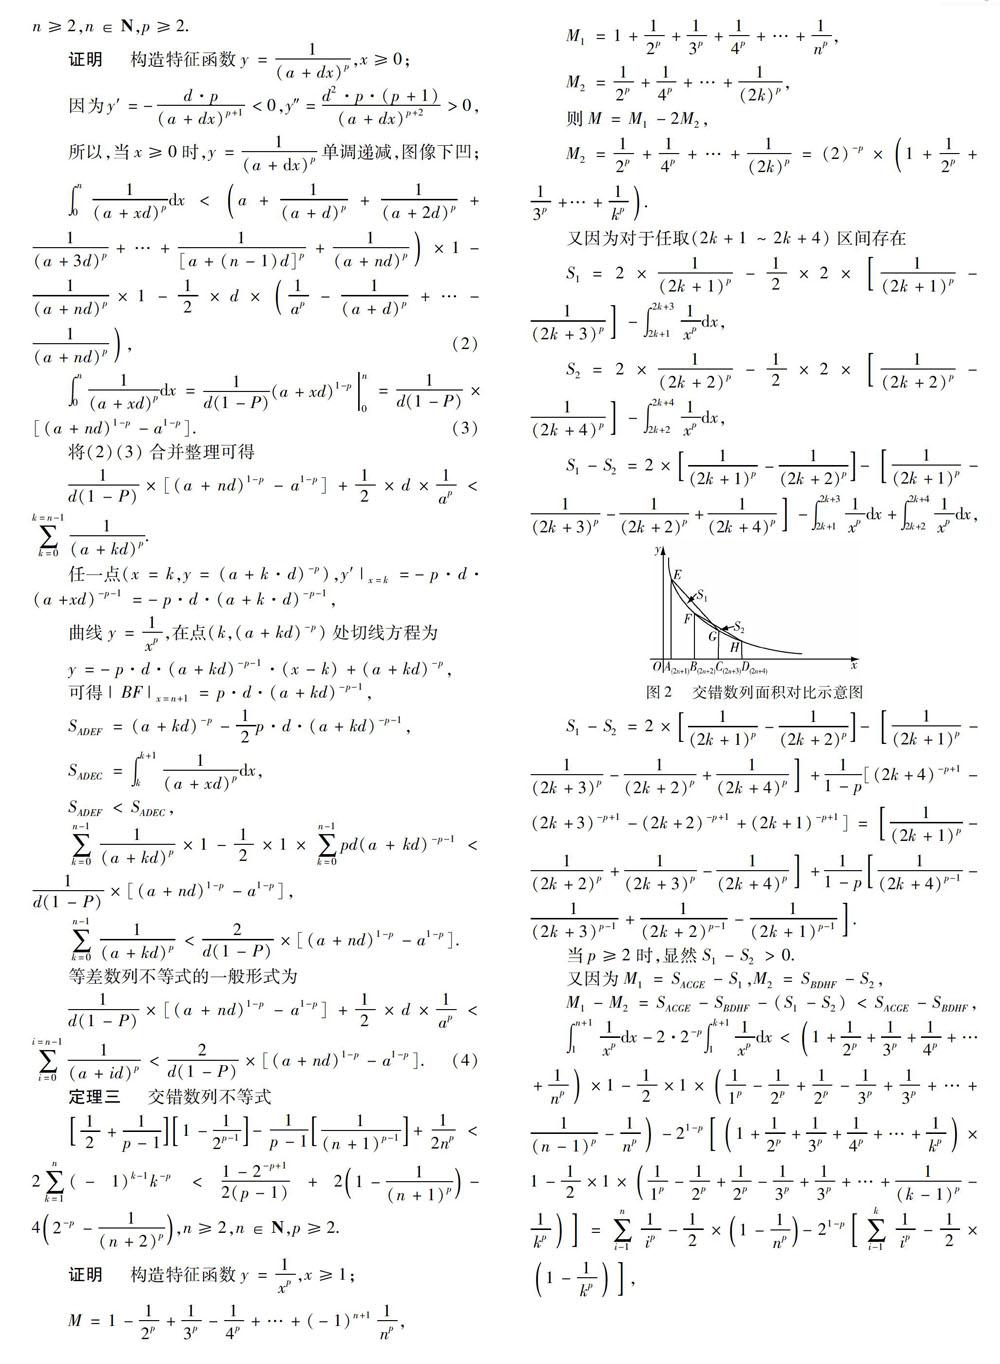 n ≥ 2, n ∈ N, p ≥ 2.
证明 构造特征函数 y = 1/(a + dx)^p, x ≥ 0;
因为 y′ = - d·p/(a + dx)^{p+1} < 0, y″ = d²·p·(p + 1)/(a + dx)^{p+2} > 0,
所以,当 x ≥ 0 时, y = 1/(a + dx)^p 单调递减,图像下凹;
∫_0^n 1/(a + xd)^p dx < (a + 1/(a + d)^p + 1/(a + 2d)^p +
1/(a + 3d)^p + ⋯ + 1/[a + (n - 1)d]^p + 1/(a + nd)^p) × 1 -
1/(a + nd)^p × 1 - 1/2 × d × (1/a^p - 1/(a + d)^p + ⋯ -
1/(a + nd)^p), (2)
∫_0^n 1/(a + xd)^p dx = 1/d(1 - P) (a + xd)^{1-p} |_0^n = 1/d(1 - P) ×
[(a + nd)^{1-p} - a^{1-p}]. (3)
将(2)(3) 合并整理可得
1/d(1 - P) × [(a + nd)^{1-p} - a^{1-p}] + 1/2 × d × 1/a^p <
∑_{k=0}^{k=n-1} 1/(a + kd)^p.
任一点(x = k, y = (a + k·d)^{-p}), y′|_{x=k} = - p·d·
(a + xd)^{-p-1} = - p·d·(a + k·d)^{-p-1},
曲线 y = 1/x^p,在点(k, (a + kd)^{-p}) 处切线方程为
y = - p·d·(a + kd)^{-p-1}·(x - k) + (a + kd)^{-p},
可得 | BF |_{x=n+1} = p·d·(a + kd)^{-p-1},
S_{ADEF} = (a + kd)^{-p} - 1/2 p·d·(a + kd)^{-p-1},
S_{ADEC} = ∫_k^{k+1} 1/(a + xd)^p dx,
S_{ADEF} < S_{ADEC},
∑_{k=0}^{n-1} 1/(a + kd)^p × 1 - 1/2 × 1 × ∑_{k=0}^{n-1} pd(a + kd)^{-p-1} <
1/d(1 - P) × [(a + nd)^{1-p} - a^{1-p}],
∑_{k=0}^{n-1} 1/(a + kd)^p < 2/d(1 - P) × [(a + nd)^{1-p} - a^{1-p}].
等差数列不等式的一般形式为
1/d(1 - P) × [(a + nd)^{1-p} - a^{1-p}] + 1/2 × d × 1/a^p <
∑_{i=0}^{i=n-1} 1/(a + id)^p < 2/d(1 - P) × [(a + nd)^{1-p} - a^{1-p}]. (4)
定理三 交错数列不等式
[1/2 + 1/(p - 1)][1 - 1/2^{p-1}] - 1/(p - 1) [1/(n + 1)^{p-1}] + 1/2n^p <
2∑_{k=1}^n (- 1)^{k-1} k^{-p} < (1 - 2^{-p+1})/2(p - 1) + 2(1 - 1/(n + 1)^p) -
4(2^{-p} - 1/(n + 2)^p), n ≥ 2, n ∈ N, p ≥ 2.
证明 构造特征函数 y = 1/x^p, x ≥ 1;
M = 1 - 1/2^p + 1/3^p - 1/4^p + ⋯ + (- 1)^{n+1} 1/n^p,
M_1 = 1 + 1/2^p + 1/3^p + 1/4^p + ⋯ + 1/n^p,
M_2 = 1/2^p + 1/4^p + ⋯ + 1/(2k)^p,
则 M = M_1 - 2M_2,
M_2 = 1/2^p + 1/4^p + ⋯ + 1/(2k)^p = (2)^{-p} × (1 + 1/2^p +
1/3^p + ⋯ + 1/k^p).
又因为对于任取(2k + 1 ~ 2k + 4) 区间存在
S_1 = 2 × 1/(2k + 1)^p - 1/2 × 2 × [1/(2k + 1)^p -
1/(2k + 3)^p] - ∫_{2k+1}^{2k+3} 1/x^p dx,
S_2 = 2 × 1/(2k + 2)^p - 1/2 × 2 × [1/(2k + 2)^p -
1/(2k + 4)^p] - ∫_{2k+2}^{2k+4} 1/x^p dx,
S_1 - S_2 = 2 × [1/(2k + 1)^p - 1/(2k + 2)^p] - [1/(2k + 1)^p -
1/(2k + 3)^p - 1/(2k + 2)^p + 1/(2k + 4)^p] - ∫_{2k+1}^{2k+3} 1/x^p dx + ∫_{2k+2}^{2k+4} 1/x^p dx,
y
E
S_1
F
S_2
G
H
O A_{(2n+1)} B_{(2n+2)} C_{(2n+3)} D_{(2n+4)} x
图 2 交错数列面积对比示意图
S_1 - S_2 = 2 × [1/(2k + 1)^p - 1/(2k + 2)^p] - [1/(2k + 1)^p -
1/(2k + 3)^p - 1/(2k + 2)^p + 1/(2k + 4)^p] + 1/(1 - p) [(2k + 4)^{-p+1} -
(2k + 3)^{-p+1} - (2k + 2)^{-p+1} + (2k + 1)^{-p+1}] = [1/(2k + 1)^p -
1/(2k + 2)^p + 1/(2k + 3)^p - 1/(2k + 4)^p] + 1/(1 - p) [1/(2k + 4)^{p-1} -
1/(2k + 3)^{p-1} + 1/(2k + 2)^{p-1} - 1/(2k + 1)^{p-1}].
当 p ≥ 2 时,显然 S_1 - S_2 > 0.
又因为 M_1 = S_{ACGE} - S_1, M_2 = S_{BDHF} - S_2,
M_1 - M_2 = S_{ACGE} - S_{BDHF} - (S_1 - S_2) < S_{ACGE} - S_{BDHF},
∫_1^{n+1} 1/x^p dx - 2·2^{-p} ∫_1^{k+1} 1/x^p dx < (1 + 1/2^p + 1/3^p + 1/4^p + ⋯
+ 1/n^p) × 1 - 1/2 × 1 × (1/1^p - 1/2^p + 1/2^p - 1/3^p + 1/3^p + ⋯ +
1/(n - 1)^p - 1/n^p) - 2^{1-p} [(1 + 1/2^p + 1/3^p + 1/4^p + ⋯ + 1/k^p) ×
1 - 1/2 × 1 × (1/1^p - 1/2^p + 1/2^p - 1/3^p + 1/3^p + ⋯ + 1/(k - 1)^p -
1/k^p)] = ∑_{i-1}^n 1/i^p - 1/2 × (1 - 1/n^p) - 2^{1-p} [∑_{i-1}^k 1/i^p - 1/2 ×
(1 - 1/k^p)],